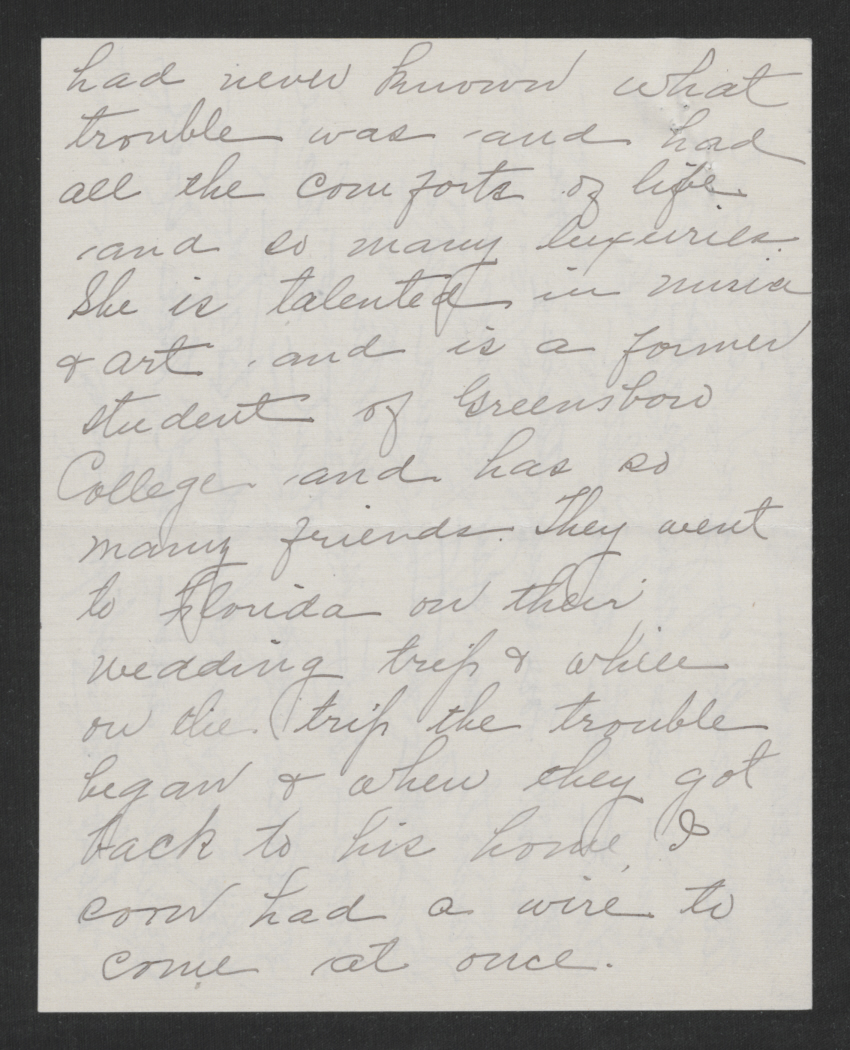 had never known what
trouble was and had
all the comforts of life
and so many luxuries.
She is talented in music
& art and is a former
student of Greensboro
College and has so
many friends. They went
to Florida on their
wedding trip & while
on the trip the trouble
began & when they got
back to his home I
soon had a wire to
come at once.